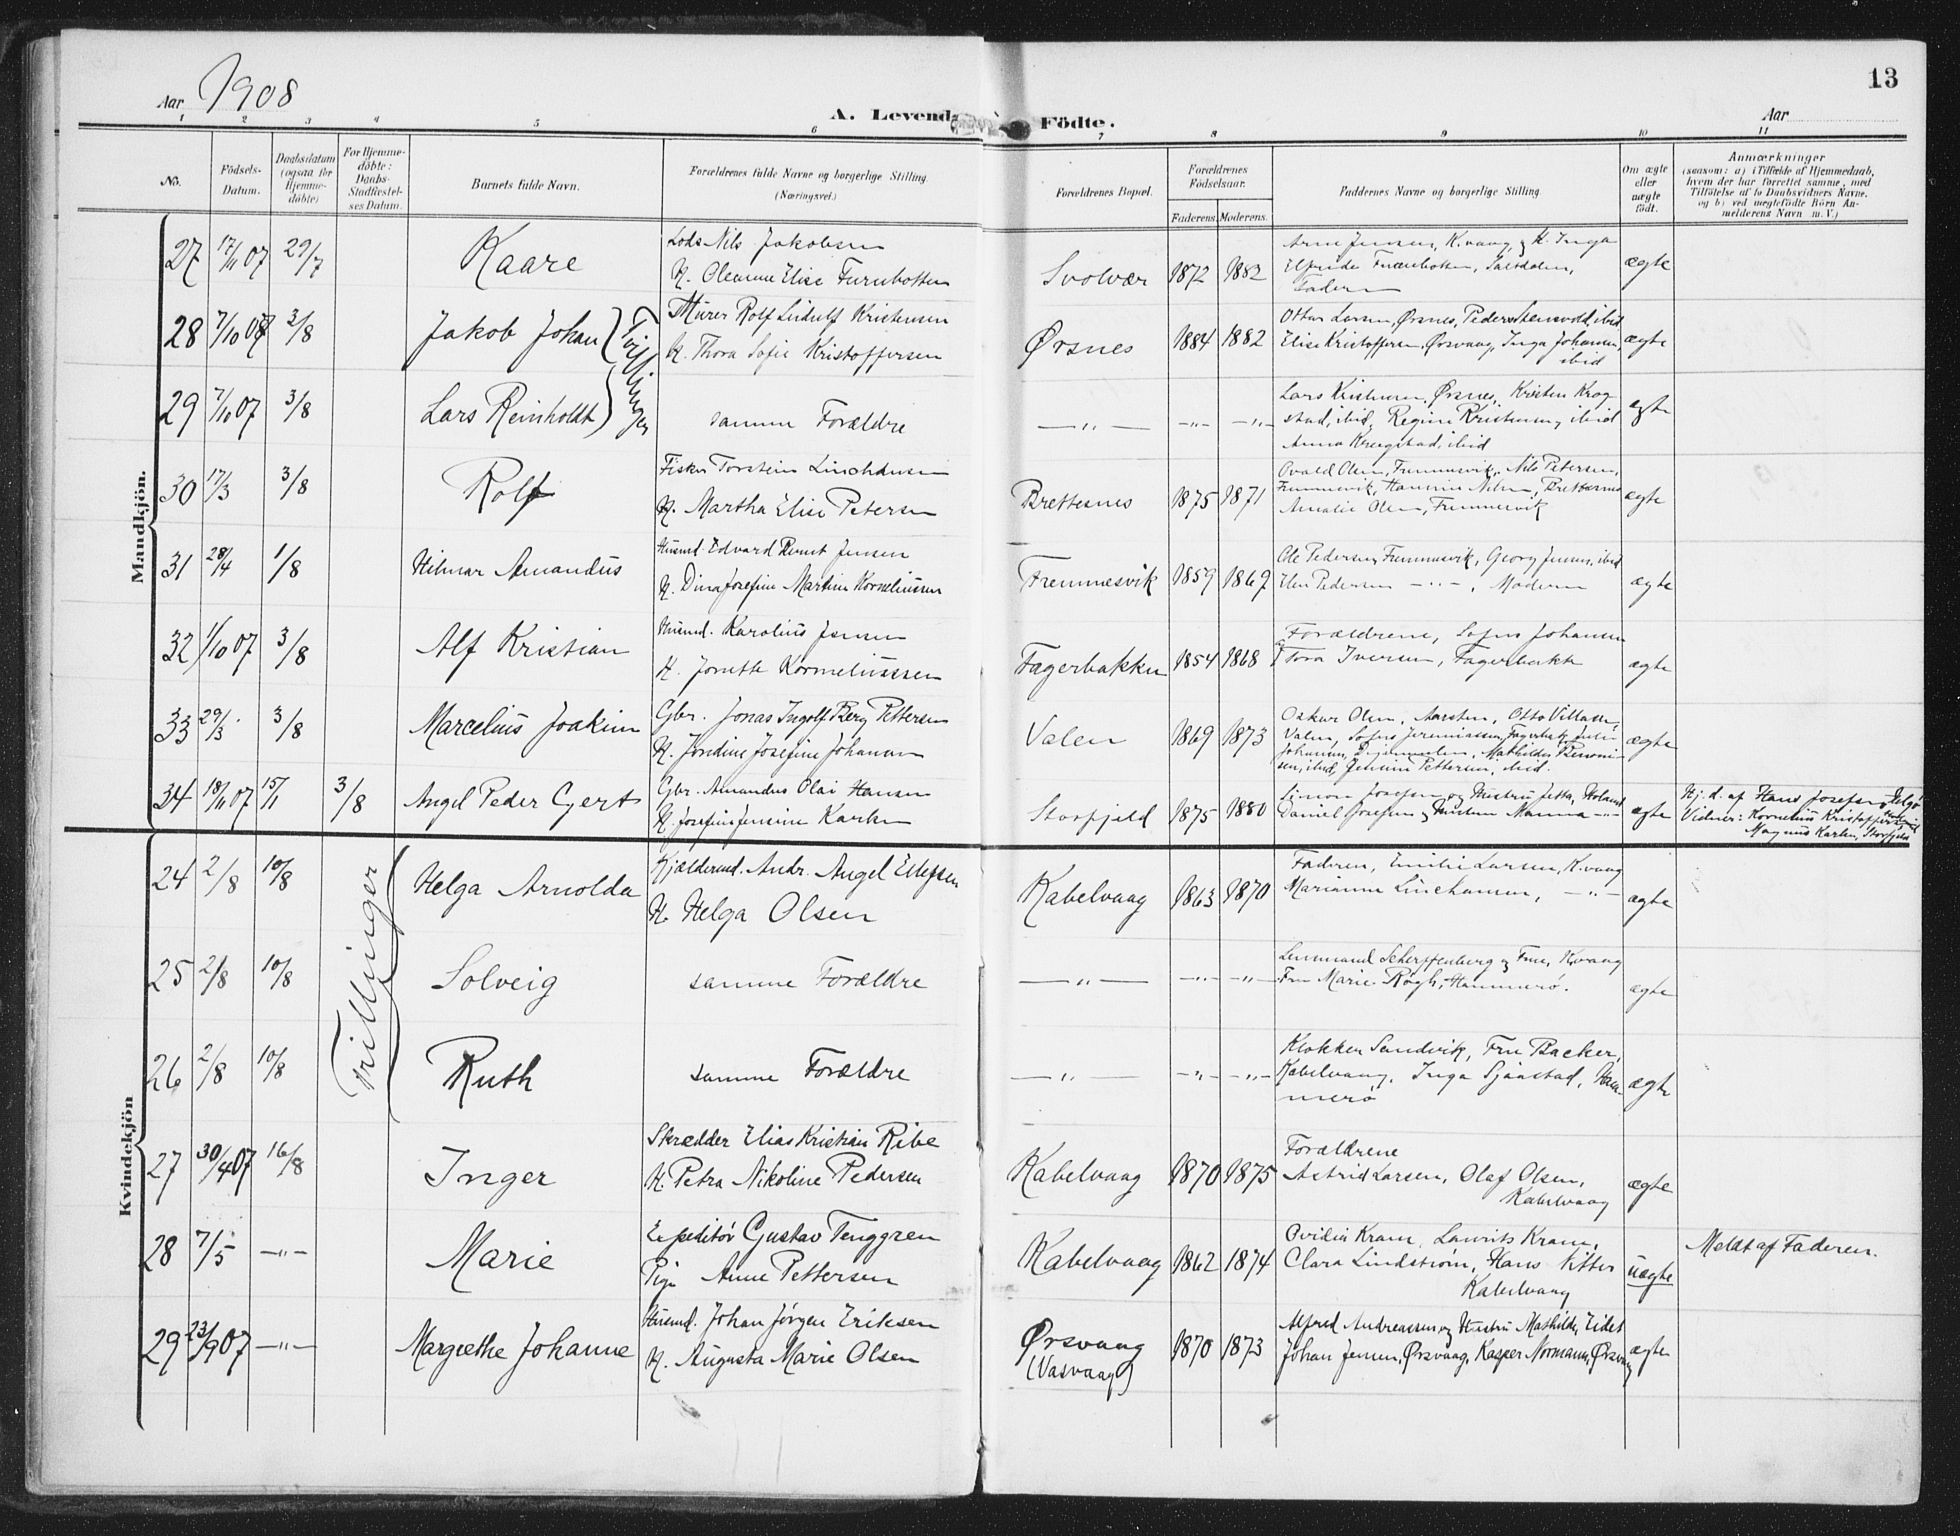 13
Aar 1908
A. Levende Födte.
Aar
1 2 3 4 5 6 7 8 9 10 11
No.
Födsels-Datum.
Daabsdatum (ogsaa for Hjemme-döbte)
For Hjemme-döbte: Daabs-Stadfæstel-ses Datum.
Barnets fulde Navn.
Forældrenes fulde Navne og borgerlige Stilling. (Næringsvei.)
Forældrenes Bopæl.
Forældrenes Födselsaar.
Faderens. Moderens.
Faddernes Navne og borgerlige Stilling.
Om ægte eller uægte födt.
Anmærkninger
(saasom: a) i Tilfælde af Hjemmedaab,
hvem der har forrettet samme, med
Tilföielse af to Daabsvidners Navne,
og b) ved uegtefödte Börn An-
melderens Navn m. V.)
Mandkjön.
27 17/11 07 29/7 Kaare
Lods Nils Jakobsen
H. Oleanne Elise Furnbotten
Svolvær 1872 1882
Arne Jensen, K.vaag, H. Inga
Elfrida Furnbotten, Saltdalen,
Faderen
ægte
28 7/10 07 3/8 Jakob Johan Tvillinger
Murer Rolf Lidulf Kristensen
H. Thora Sofie Kristoffersen
Ørsnes 1884 1882
Ottar Larsen, Ørsnes, Peder Stensvold, ibid
Elise Kristoffersen, Ørsvaag, Inga Johansen,
ibid
ægte
29 7/10 07 3/8 Lars Reinholdt
samme Forældre
—„— —„— —„—
Lars Kristensen, Ørsnes, Kristen Krog
stad, ibid, Regine Kristensen, ibid
Anna Krogstad, ibid
ægte
30 17/3 3/8 Rolf
Fisker Torstein Linchausen
H. Martha Elise Petersen
Brættesnes 1875 1871
Ovald Olsen, Fremnesvik, Nils Petersen,
Fremnesvik, Hannine Nilsen, Brettesnes
Amalie Olsen, Fremnesvik
ægte
31 28/4 1/8 Hilmar Amandus
Husmd. Edvard Bernt Jensen
H. Dina Josefine Martine Korneliussen
Fremnesvik 1859 1869
Ole Pedersen, Fremnesvik, Georg Jensen, ibid
Elen Pedersen —„—, Moderen
ægte
32 1/10 07 3/8 Alf Kristian
Husmd. Karolius Jensen
H. Jonette Korneliussen
Fagerbakken 1854 1868
Forældrene, Sofus Johansen
Tora Iversen, Fagerbakk
ægte
33 29/3 3/8 Marcelius Joakim
Gbr. Jonas Ingolf Berg Pettersen
H. Jondine Josefine Johansen
Valen 1869 1873
Oskar Olsen, Aarsten, Otto Villassen,
Valen, Sofus Jeremiassen, Fagerbak,
Johansen, Mathilde
sen, ibid, Jensine Pettersen, ibid.
ægte
34 18/11 07 15/1 3/8 Angel Peder Gjert
Gbr. Amandus Olai Hansen
H. Josefine Jensine Karlsen
Storfjeld 1875 1880
Simon Josefsen og Hustru Jetta, Holand
Daniel Josefsen Hustru Manna —„—
ægte
Hj. d. af Hans Josefsen, Helgø
Vidner: Kornelius Kristoffersen
Magnus Karlsen, Storfjeld
Kvindekjön
24 2/8 10/8 Trillinger Helga Arnolda
Kjældermd. Andr. Angel Ellefsen
H. Helga Olsen
Kabelvaag 1863 1870
Faderen, Emilie Larsen, K.vaag
Marianne Linchausen, —„—
ægte
25 2/8 10/8 Solveig
samme Forældre
—„— —„— —„—
Lensmand Scherpfenberg og Frue, K.vaag
Fru Marie Røgh, Hammerø.
ægte
26 2/8 10/8 Ruth
samme Forældre
—„— —„— —„—
Klokker Sandvik, Fru Backer,
Kabelvaag, Inga Sjaastad, Ham-
merø
ægte
27 30/4 07 16/8 Inger
Skrædder Elias Kristian Ribe
H. Petra Nikoline Pedersen
Kabelvaag 1870 1875
Forældrene
Astrid Larsen, Olaf Olsen,
Kabelvaag
ægte
28 7/5 —„— Marie
Expeditør Gustav Tenggren
Pige Anne Pettersen
Kabelvaag 1862 1874
Ovidia Kram, Laurits Kram,
Clara Lindstrøm, Hans Vitter
Kabelvaag
uægte
Meldt af Faderen.
29 23/9 07 —„— Margrethe Johanne
Husmd. Johan Jørgen Eriksen
H. Augusta Marie Olsen
Ørsvaag
(Vasvaag)
1870 1873
Alfred Andreassen og Hustru Mathilde, Eidet
Johan Jensen, Ørsvaag, Kasper Normann, Ørsvaag
ægte